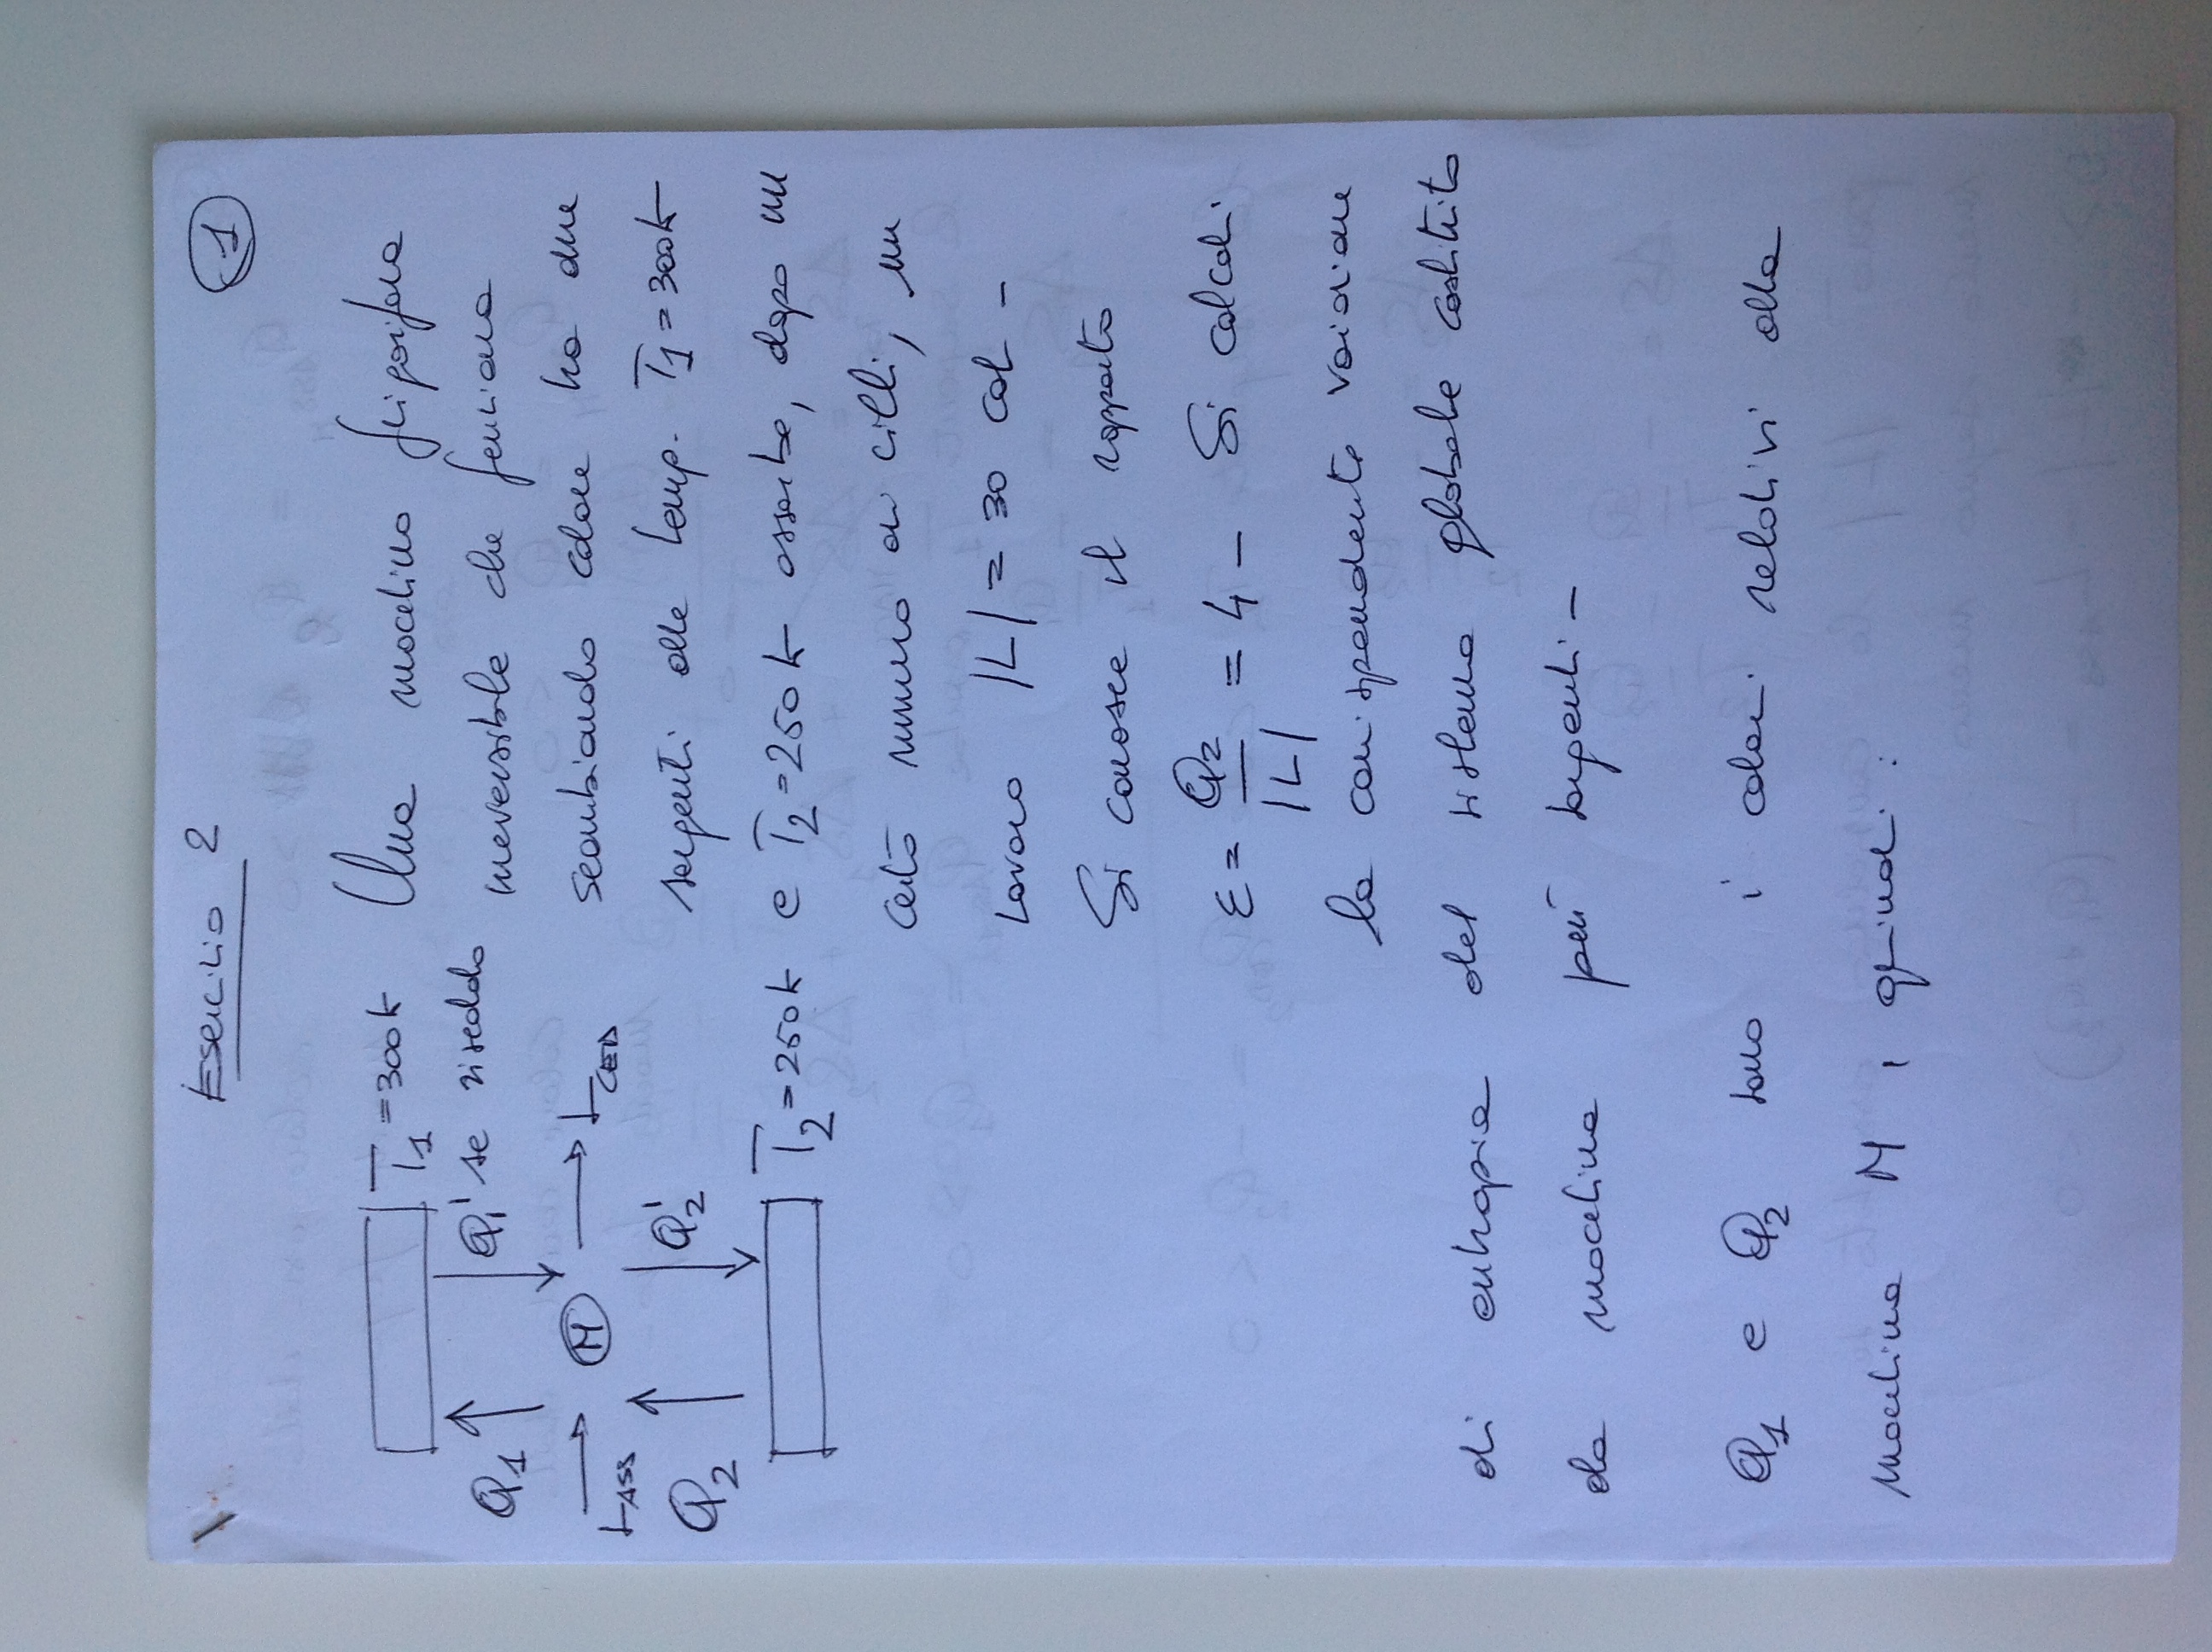 Esercizio 2
1
T1 = 300K
Q1
Q1' se riscaldo
LASS
M
LCED
Q2
Q2'
T2 = 250K
Una macchina frigorifera
irreversibile che funziona
scambiando calore tra due
sorgenti alle temp. T1 = 300K
e T2 = 250K assorbe, dopo un
certo numero di cicli, un
lavoro |L| = 30 cal -
Si conosce il rapporto
ε = Q2 / |L| = 4 - Si calcoli
la corrispondente variazione
di entropia del sistema globale costituito
da macchina più sorgenti -
Q1 e Q2 sono i calori relativi alla
macchina M, quindi: